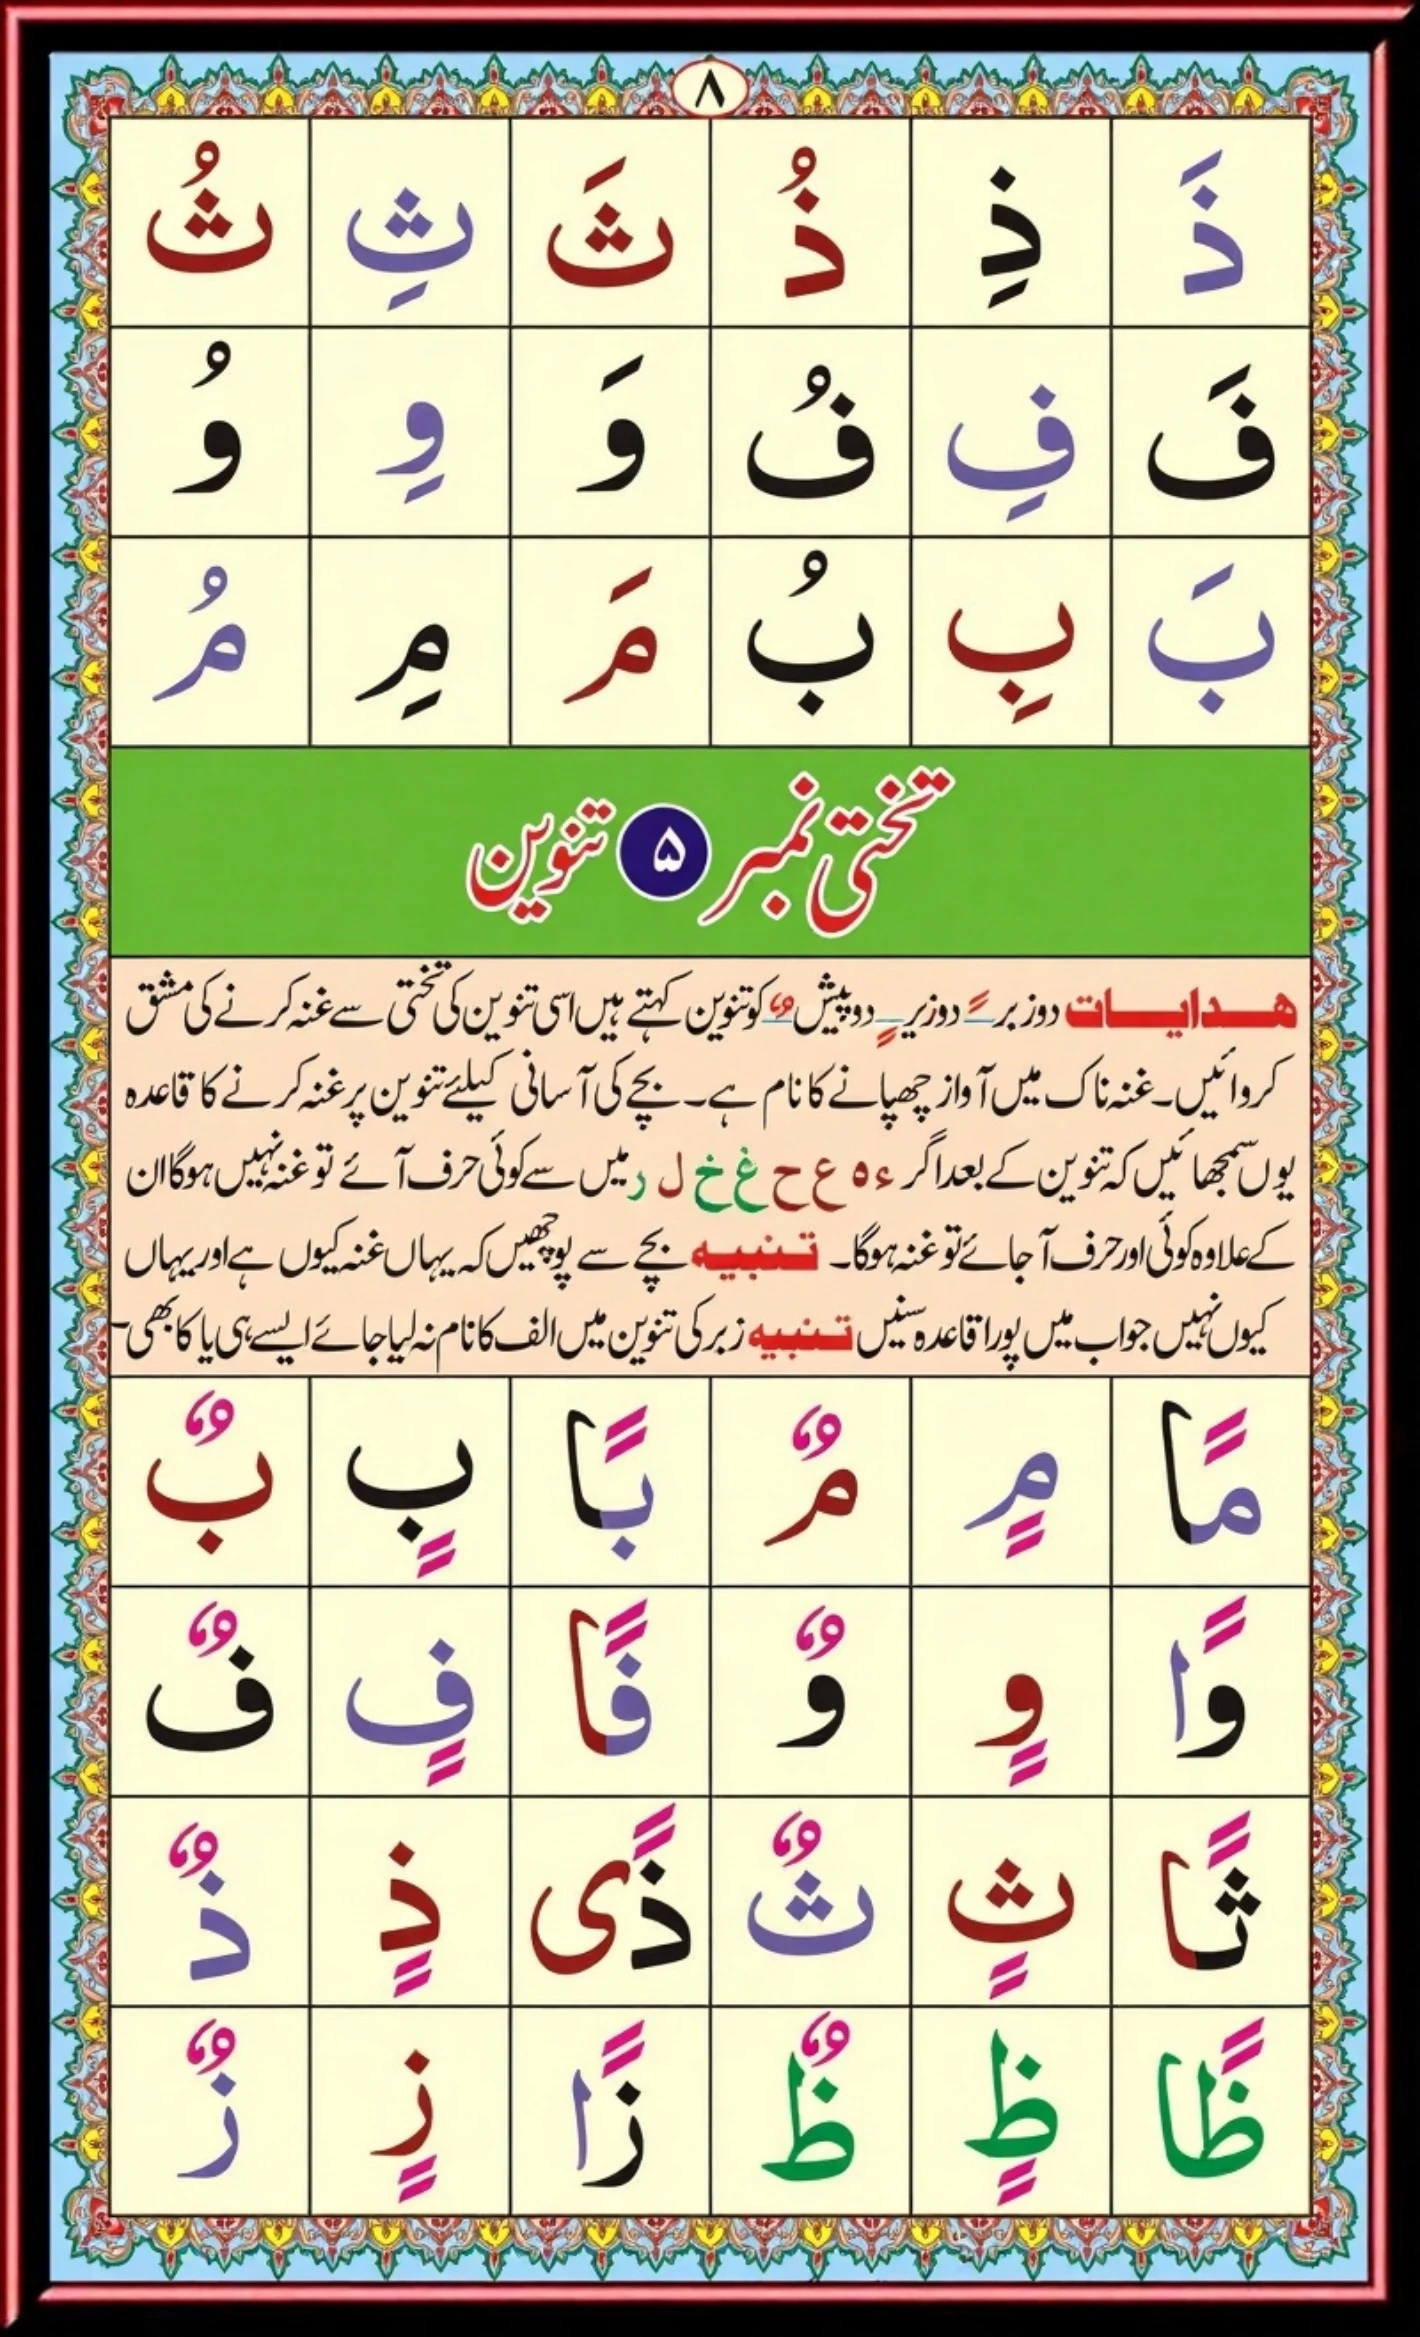 ٨
ذَ ذِ ذُ ثَ ثِ ثُ
فَ فِ فُ وَ وِ وُ
بَ بِ بُ مَ مِ مُ
تختی نمبر ۵ تنوین
ھدایات دوزبر ـً دوزیر ـٍ دوپیش ـٌ کو تنوین کہتے ہیں اسی تنوین کی تختی سے غنہ کرنے کی مشق
کروائیں۔ غنہ ناک میں آواز چھپانے کا نام ہے۔ بچے کی آسانی کیلئے تنوین پر غنہ کرنے کا قاعدہ
یوں سمجھائیں کہ تنوین کے بعد اگر ء ہ ع ح غ خ ل ر میں سے کوئی حرف آئے تو غنہ نہیں ہوگا ان
کے علاوہ کوئی اور حرف آجائے تو غنہ ہوگا۔ تنبیہ بچے سے پوچھیں کہ یہاں غنہ کیوں ہے اور یہاں
کیوں نہیں جواب میں پورا قاعدہ سنیں تنبیہ زبر کی تنوین میں الف کا نام نہ لیا جائے ایسے ہی یا کا بھی۔
مًا مٍ مٌ بًا بٍ بٌ
وًا وٍ وٌ فًا فٍ فٌ
ثًا ثٍ ثٌ ذًی ذٍ ذٌ
ظًا ظٍ ظٌ زًا زٍ زٌ